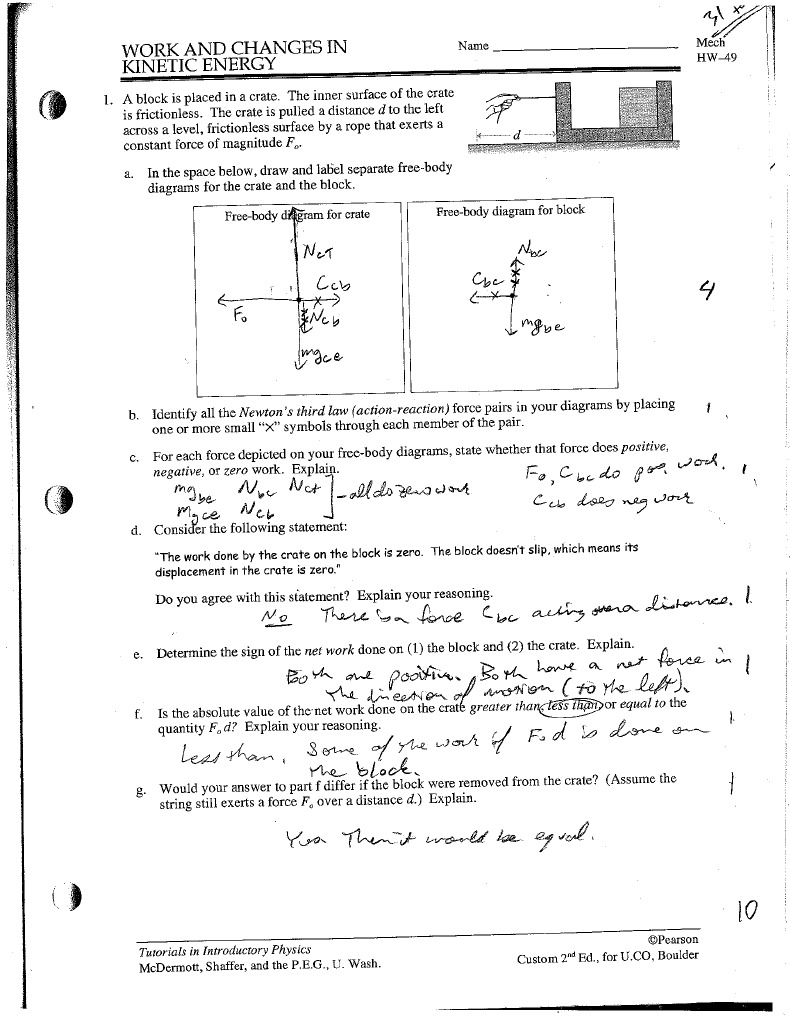 31
WORK AND CHANGES IN
KINETIC ENERGY
Name
Mech
HW–49
1. A block is placed in a crate. The inner surface of the crate
is frictionless. The crate is pulled a distance d to the left
across a level, frictionless surface by a rope that exerts a
constant force of magnitude Fₒ.
d
a. In the space below, draw and label separate free-body
diagrams for the crate and the block.
Free-body diagram for crate
Free-body diagram for block
NcT
Ccb
F₀
Ncb
mgce
Nbc
Cbc
mgbe
4
b. Identify all the Newton's third law (action-reaction) force pairs in your diagrams by placing
one or more small "×" symbols through each member of the pair.
1
c. For each force depicted on your free-body diagrams, state whether that force does positive,
negative, or zero work. Explain.
F₀, Cbc do pos. work.
1
mgbe Nbc Nct
mgce Ncb
– all do zero work
Ccb does neg work
d. Consider the following statement:
"The work done by the crate on the block is zero. The block doesn't slip, which means its
displacement in the crate is zero."
Do you agree with this statement? Explain your reasoning.
No There is a force Cbc acting over a distance.
1
e. Determine the sign of the net work done on (1) the block and (2) the crate. Explain.
Both are positive. Both have a net force in
the direction of motion (to the left).
1
f. Is the absolute value of the net work done on the crate greater than, less than, or equal to the
quantity Fₒd? Explain your reasoning.
1
Less than. Some of the work of F₀d is done on
the block.
g. Would your answer to part f differ if the block were removed from the crate? (Assume the
string still exerts a force Fₒ over a distance d.) Explain.
1
Yes Then it would be equal.
10
Tutorials in Introductory Physics
McDermott, Shaffer, and the P.E.G., U. Wash.
©Pearson
Custom 2nd Ed., for U.CO, Boulder